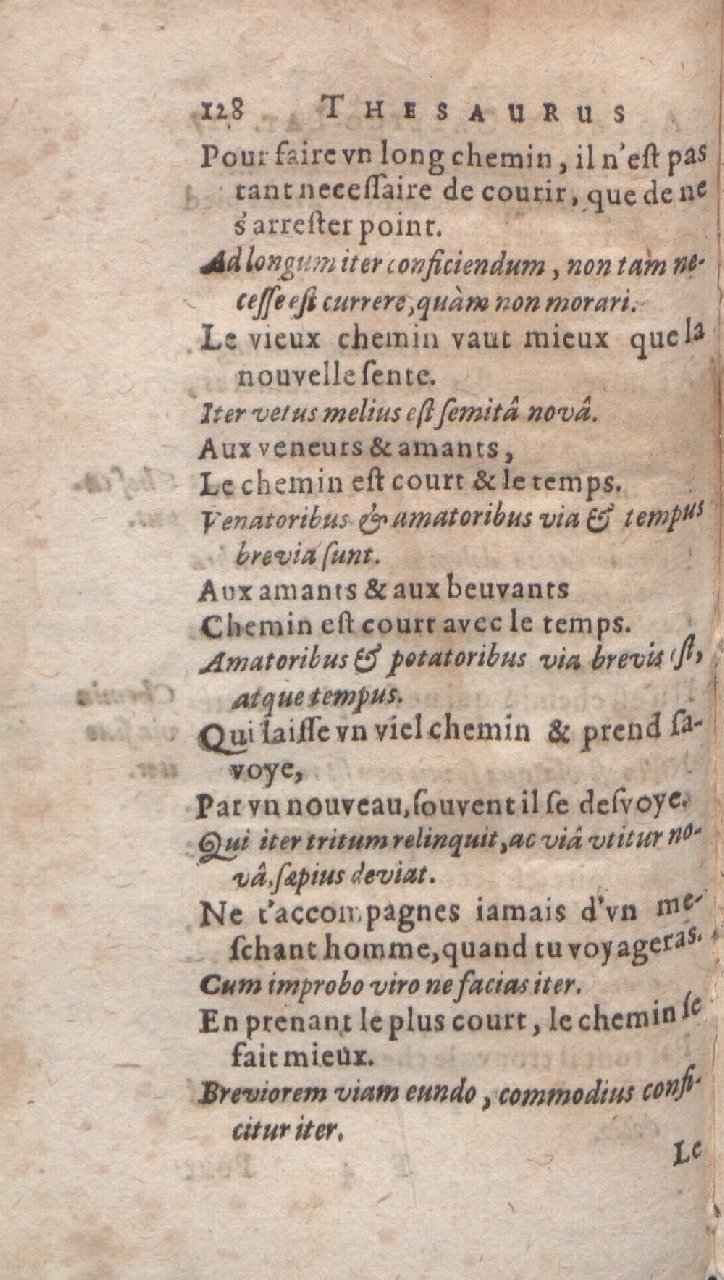 128 THESAURUS
Pour faire vn long chemin, il n'eſt pas
tant neceſſaire de courir, que de ne
s'arreſter point.
Ad longum iter conficiendum, non tam ne-
ceſſe eſt currere, quàm non morari.
Le vieux chemin vaut mieux que la
nouvelle ſente.
Iter vetus melius eſt ſemitâ novâ.
Aux veneurs & amants,
Le chemin eſt court & le temps.
Venatoribus & amatoribus via & tempus
brevia ſunt.
Aux amants & aux beuvants
Chemin eſt court avec le temps.
Amatoribus & potatoribus via brevis eſt,
atque tempus.
Qui laiſſe vn viel chemin & prend ſa-
voye,
Par vn nouveau, ſouvent il ſe deſvoye.
Qui iter tritum relinquit, ac viâ vtitur no-
vâ, ſæpius deviat.
Ne t'accompagnes iamais d'vn me-
ſchant homme, quand tu voyageras.
Cum improbo viro ne facias iter.
En prenant le plus court, le chemin ſe
fait mieux.
Breviorem viam eundo, commodius confi-
citur iter.
Le